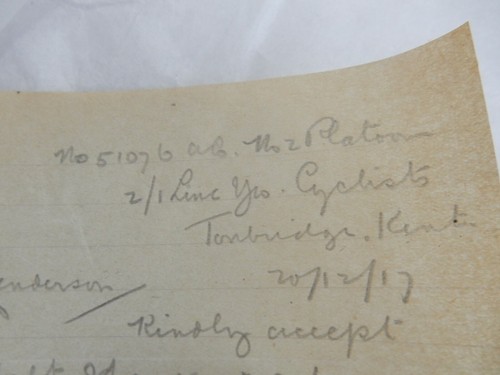 No 51076 No 2 Platoon
2/1 Linc Yeo. Cyclists
Tonbridge, Kent
20/12/17
enderson
Kindly accept